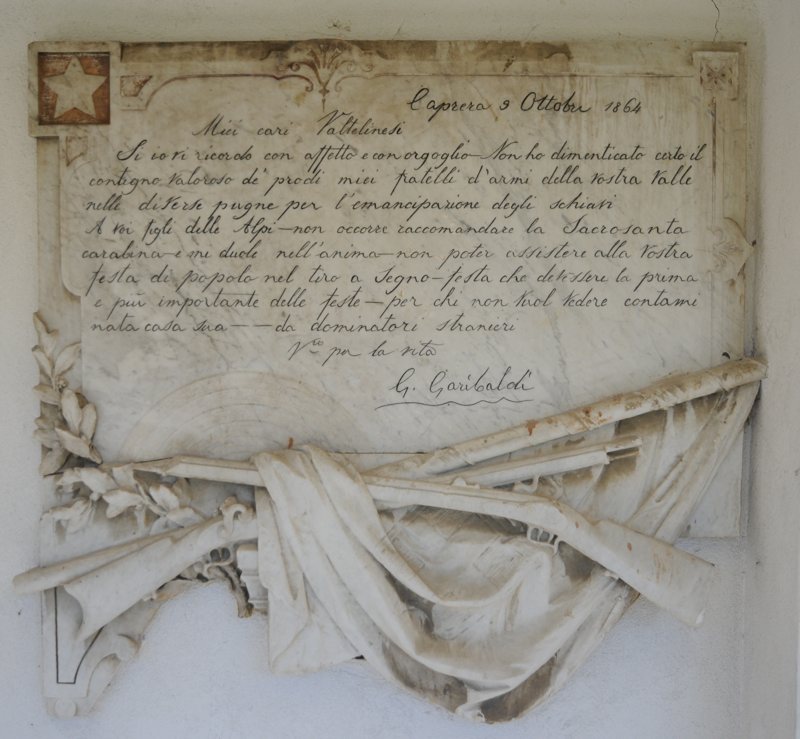 Caprera 9 Ottobre 1864
Miei cari Valtelinesi
Si io vi ricordo con affetto e con orgoglio—Non ho dimenticato certo il
contegno valoroso de' prodi miei fratelli d'armi della vostra Valle
nelle diverse pugne per l'emancipazione degli schiavi
A voi figli delle Alpi—non occorre raccomandare la Sacrosanta
carabina—e mi duole nell'anima—non poter assistere alla vostra
festa di popolo nel tiro a Segno—festa che dev'essere la prima
e più importante delle feste—per chi non vuol vedere contami
nata casa sua——da dominatori stranieri
Vro per la vita
G. Garibaldi